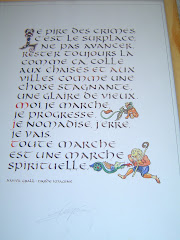 Le pire des crimes
c'est le surplace,
ne pas avancer,
rester toujours là
comme ça collé
aux chaises et aux
villes comme une
chose stagnante,
une glaire de vieux.
Moi je marche,
je progresse,
je nomadise, j'erre,
je vais.
Toute marche
est une marche
spirituelle.